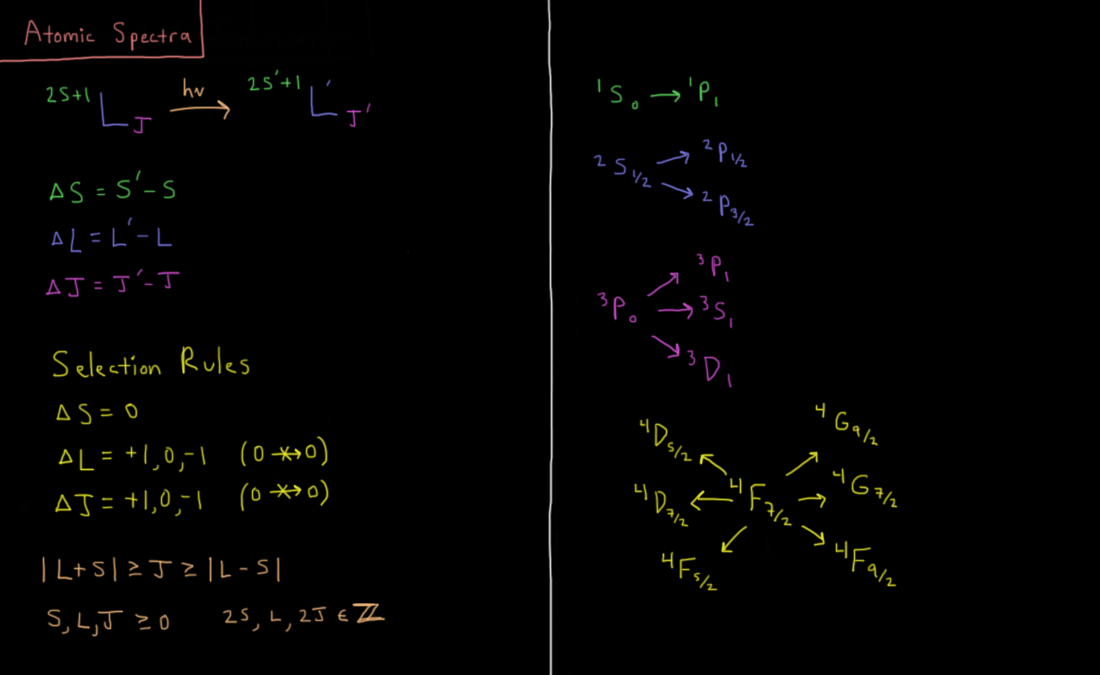 Atomic Spectra
²ˢ⁺¹L_J —hν→ ²ˢ'⁺¹L'_J'
ΔS = S' - S
ΔL = L' - L
ΔJ = J' - J
Selection Rules
ΔS = 0
ΔL = +1, 0, -1 (0 ↛ 0)
ΔJ = +1, 0, -1 (0 ↛ 0)
|L+S| ≥ J ≥ |L - S|
S, L, J ≥ 0 2S, L, 2J ∈ ℤ
¹S₀ → ¹P₁
²P₁/₂
²S₁/₂
²P₃/₂
³P₁
³P₀ → ³S₁
³D₁
⁴D₅/₂ ⁴G₉/₂
⁴D₇/₂ ← ⁴F₇/₂ → ⁴G₇/₂
⁴F₅/₂ ⁴F₉/₂